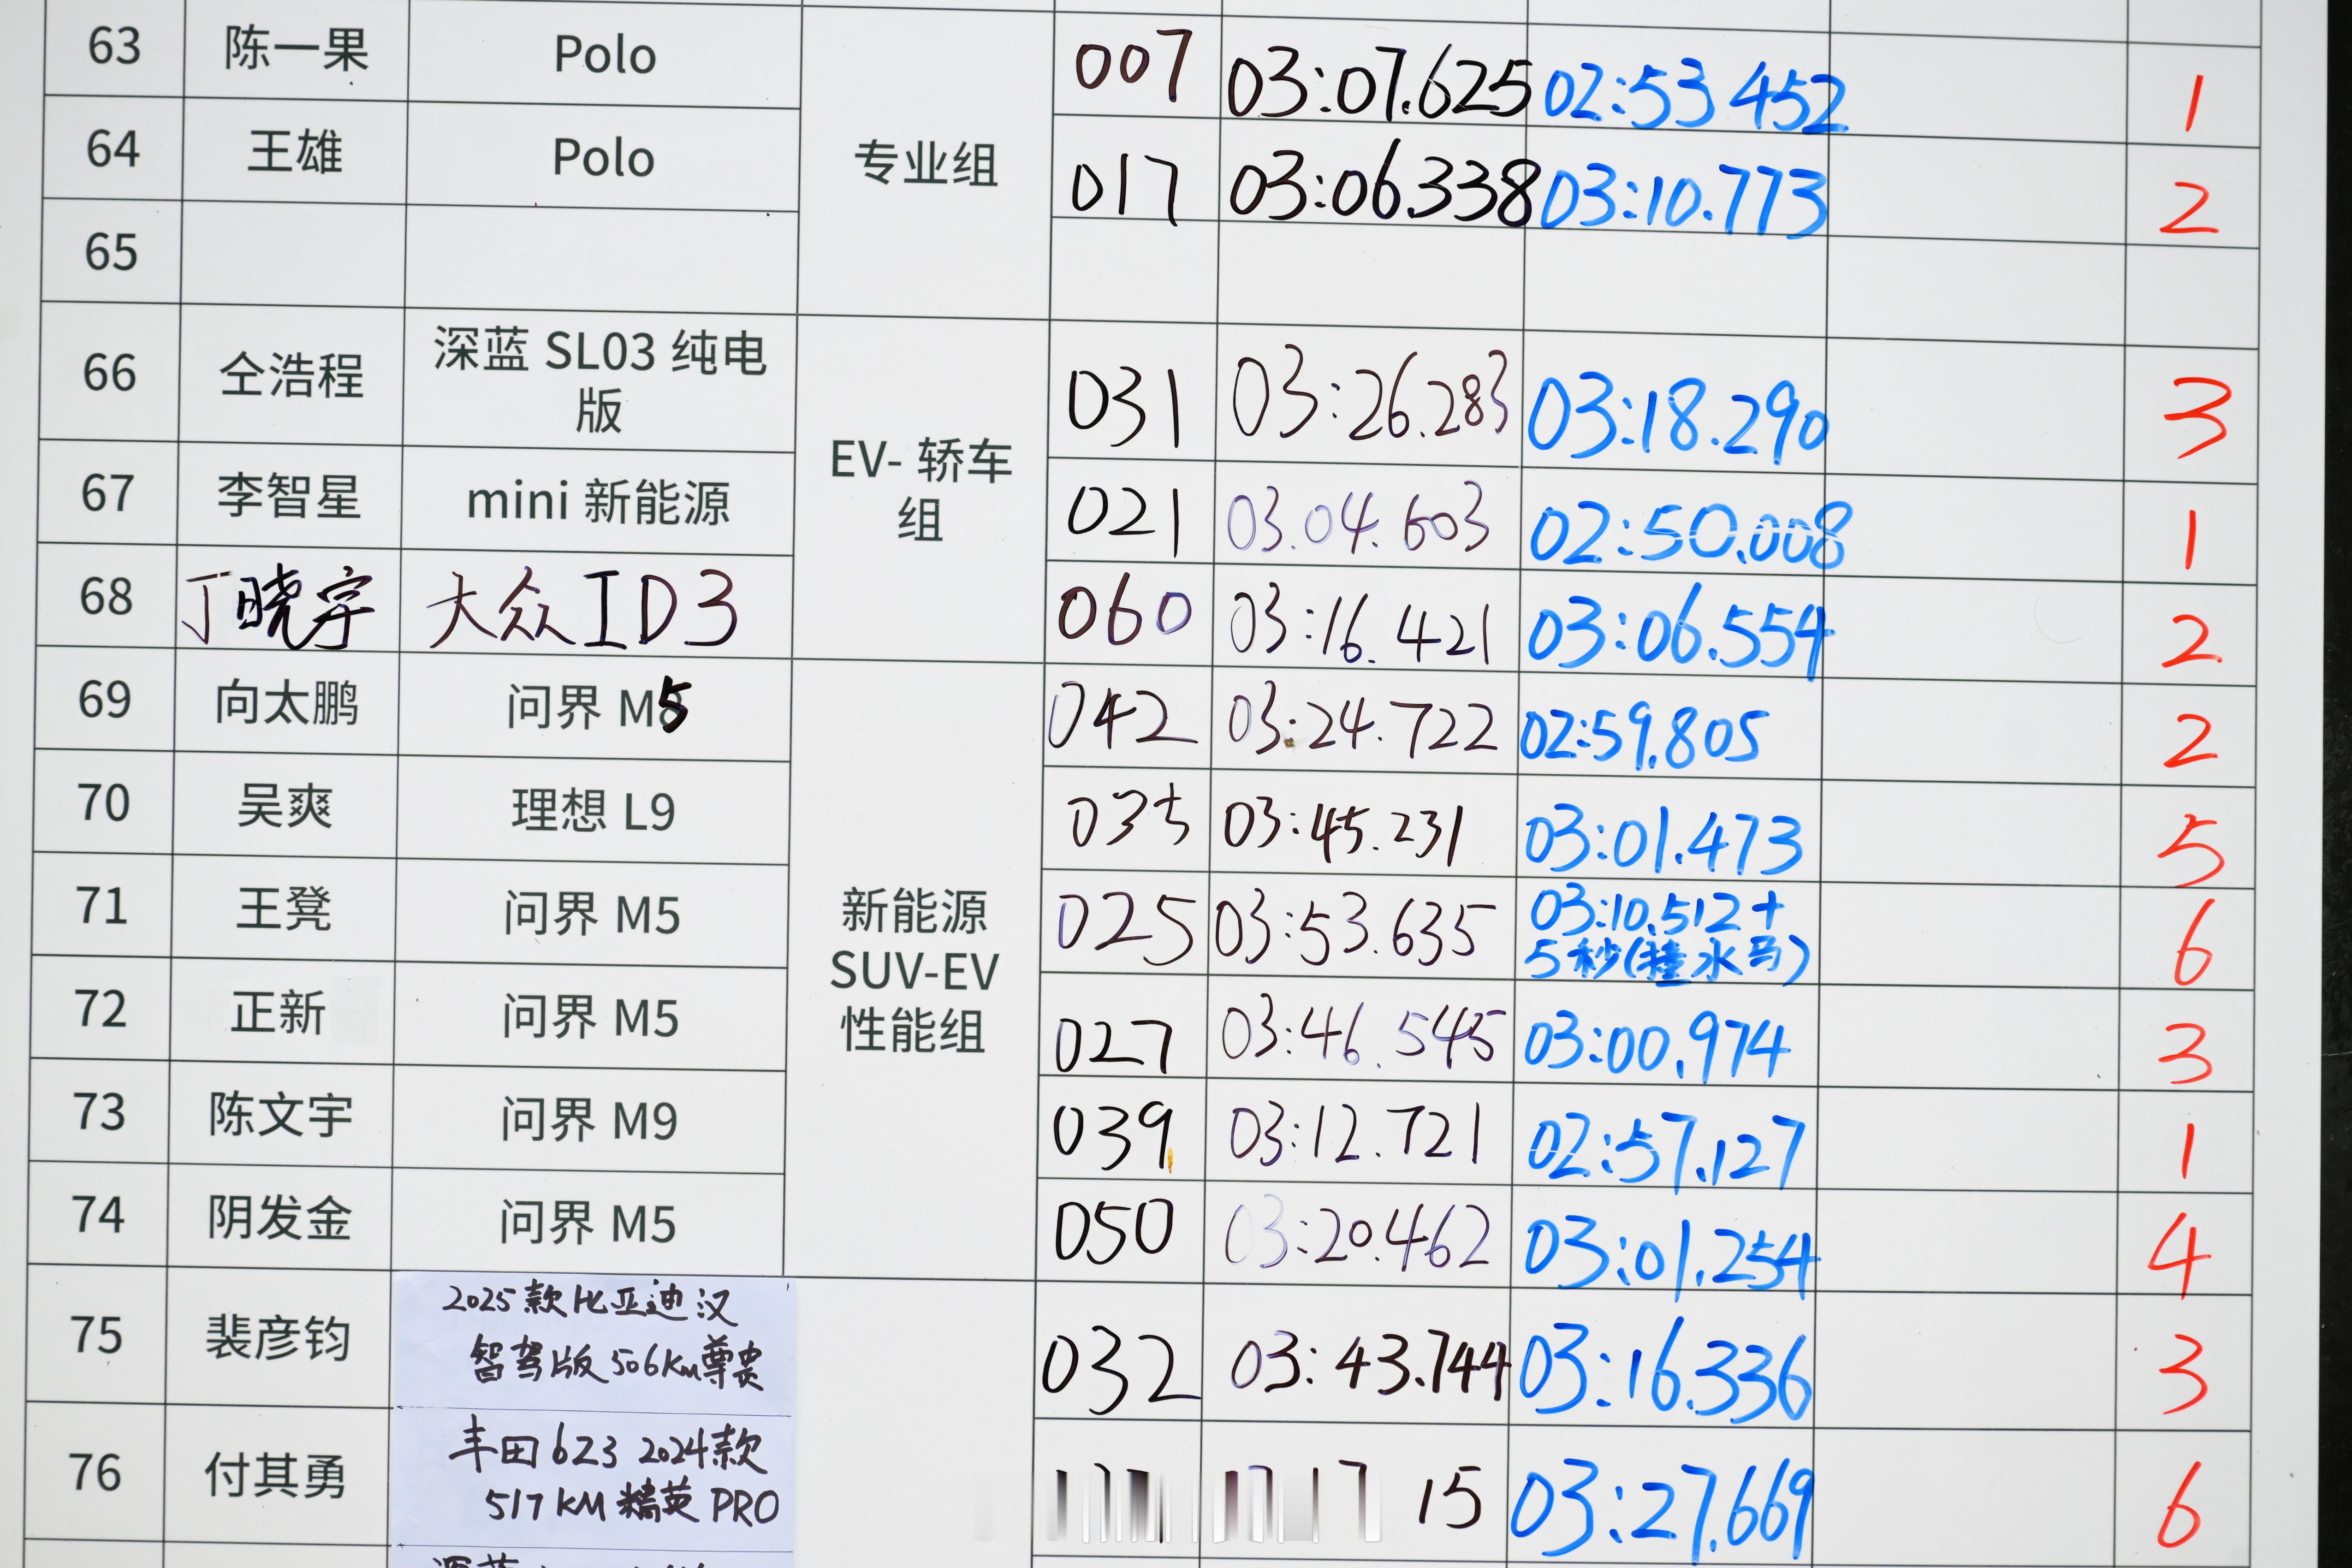 63 陈一果 Polo 007 03:07.625 02:53 452 1
64 王雄 Polo 专业组 017 03:06.338 03:10.773 2
65
66 仝浩程 深蓝 SL03 纯电 031 03:26.283 03:18.290 3
版
EV- 轿车
组
67 李智星 mini 新能源 021 03.04.603 02:50.008 1
68 丁晓宇 大众ID3 060 03:16.421 03:06.554 2
69 向太鹏 问界 M5 042 03:24.722 02:59.805 2
70 吴爽 理想 L9 035 03:45.231 03:01.473 5
71 王凳 问界 M5 025 03:53.635 03:10.512+ 6
5秒(撞水马)
新能源
SUV-EV
性能组
72 正新 问界 M5 027 03:46.545 03:00.974 3
73 陈文宇 问界 M9 039 03:12.721 02:57.127 1
74 阴发金 问界 M5 050 03:20.462 03:01.254 4
75 裴彦钧 2025款比亚迪汉 032 03:43.744 03:16.336 3
智驾版506Km尊贵
76 付其勇 丰田bZ3 2024款 15 03:27.669 6
517KM精英PRO